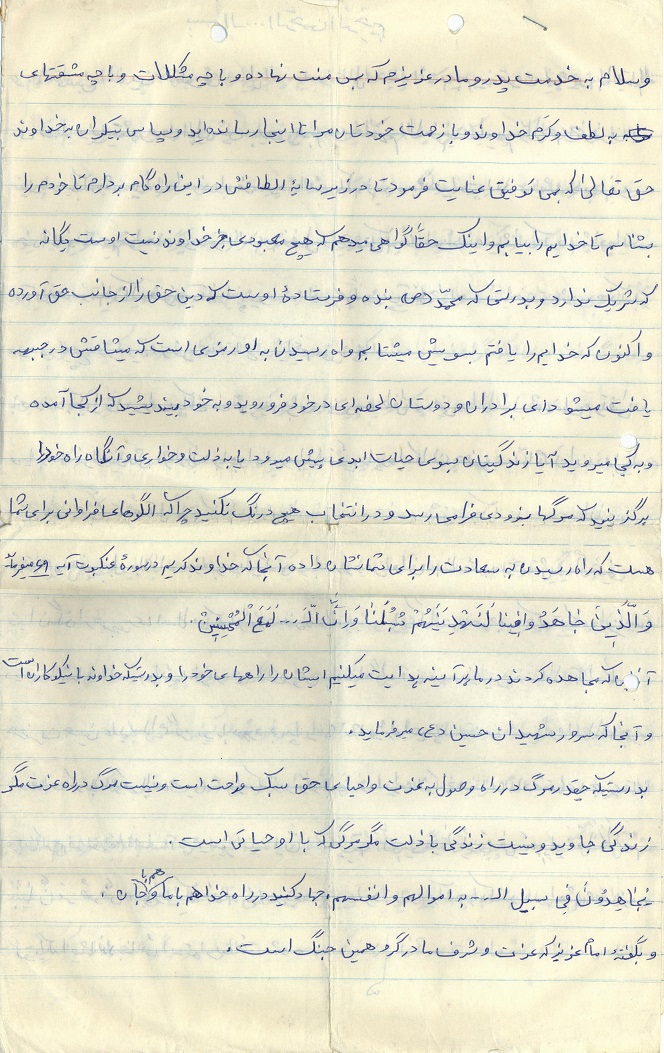 وسلام به خدمت پدر و مادر عزیزم که بس منت نهاده و با چه مشکلات و با چه مشقتهای
به لطف و کرم خداوند و با زحمت خودتان مرا تا اینجا رسانده‌اید و سپاس بیکران به خداوند
حق تعالی که بمن توفیق عنایت فرمود تا در زیر سایهٔ الطافش در این راه گام بردارم تا خودم را
بشناسم تا خدایم را بیابم و اینک حقاً گواهی میدهم که هیچ معبودی جز خداوند نیست اوست یگانه
که شریک ندارد و بدرستی که محمّد (ص) بنده و فرستادهٔ اوست که دین حق را از جانب حق آورده
و اکنون که خدایم را یافتم بسویش میشتابم و راه رسیدن به او رمزی است که میثاقش در جبهه
یافت میشود ای برادران و دوستان لحظه‌ای در خود فرو روید و به خود بیندیشید که از کجا آمده
و به کجا میروید آیا زندگیتان بسوی حیات ابدی پیش میرود یا به ذلت و خواری و آنگاه راه خود را
برگزینید که مرگها بزودی فرا می‌رسد و در انتخاب هیچ درنگ نکنید چرا که الگوهای فراوانی برای شما
هست که راه رسیدن به سعادت را برای شما نشان داده آنجا که خداوند کریم در سورهٔ عنکبوت آیه ۶۹ میفرماید
وَالَّذِینَ جَاهَدُوا فِینا لَنَهْدِیَنَّهُمْ سُبُلَنَا وَ اِنَّ الـ... لَمَعَ الْمُحْسِنِینَ.
آنان که مجاهده کردند در ما هر آینه هدایت میکنیم ایشان را راههای خود را و بدرستیکه خداوند با نیکوکاران است
و آنجا که سرور شهیدان حسین (ع) میفرماید.
بدرستیکه چقدر مرگ در راه وصول به عزت و احیای حق سبک و راحت است و نیست مرگ در راه عزت مگر
زندگی جاوید و نیست زندگی با ذلت مگر مرگی که با او حیاتی است.
یُجَاهِدُونَ فِی سبیل الـ... به اموالهم و انفسهم، جهاد کنید در راه خدا هم با مال و هم با جان.
و بگفتهٔ امام عزیز که عزت و شرف ما در گرو همین جنگ است.